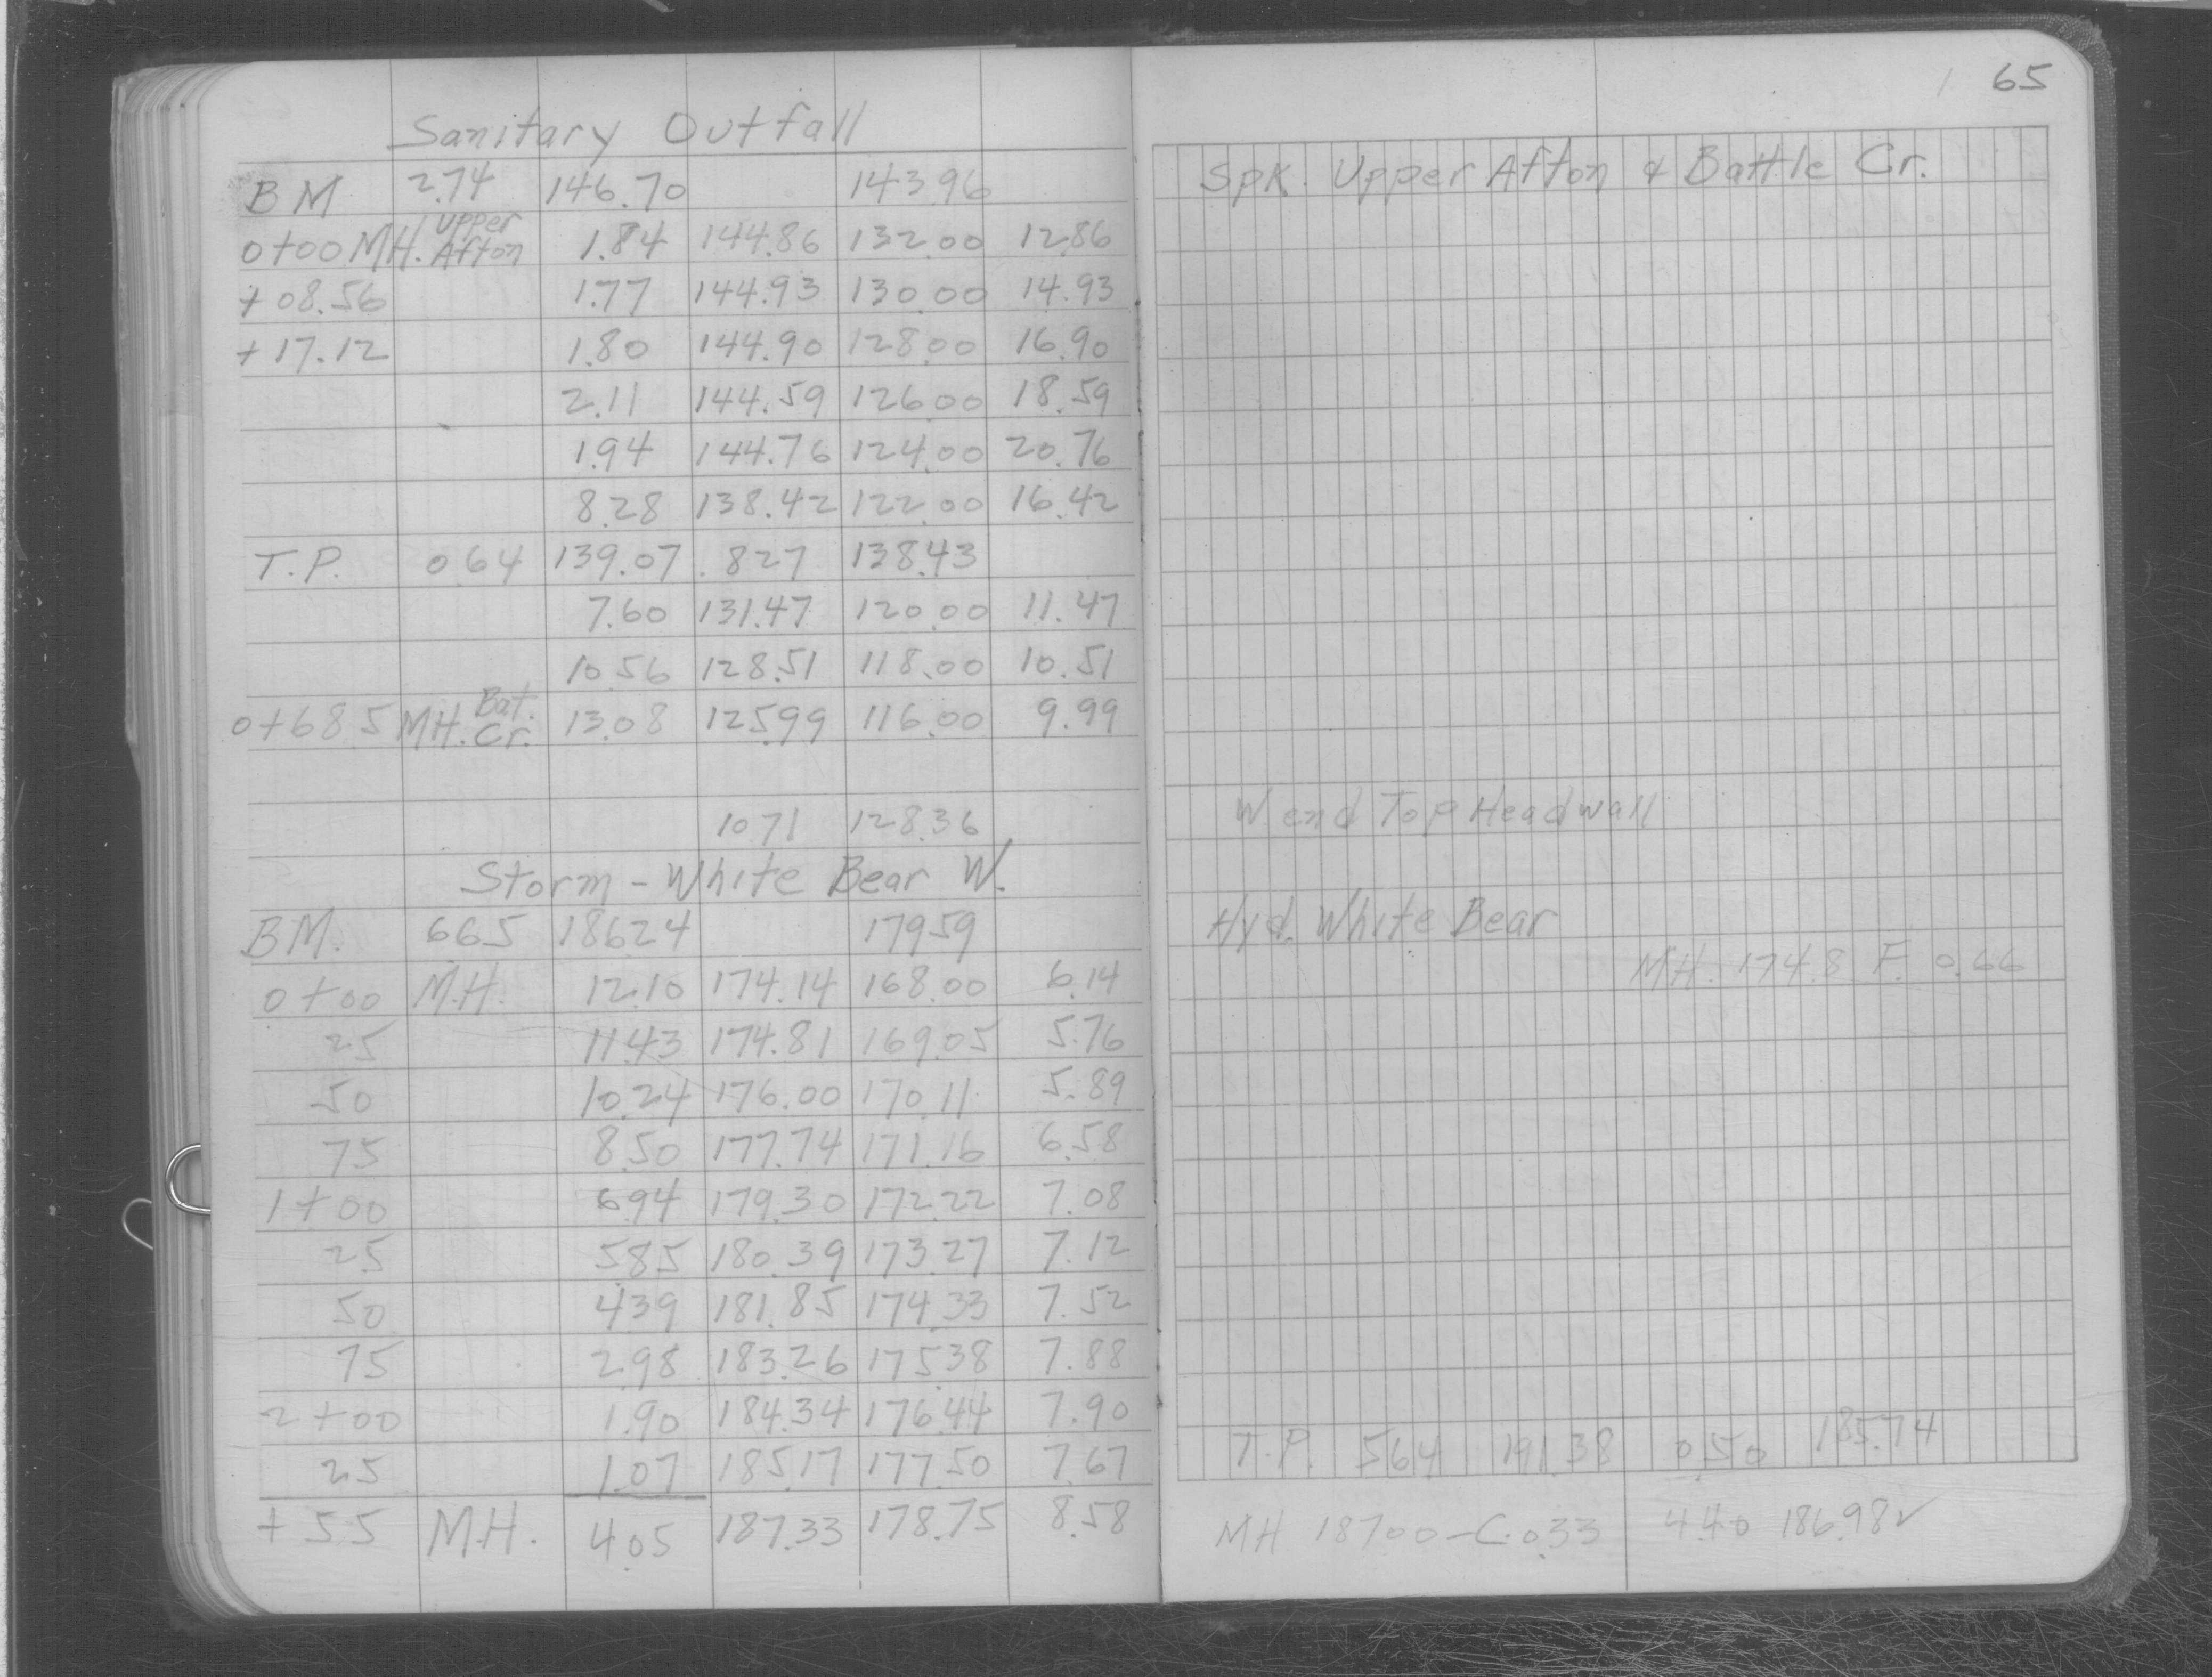 65
Sanitary Outfall
BM 2.74 146.70 143.96 Spk. Upper Afton & Battle Cr.
0+00 MH. Upper Afton 1.84 144.86 132.00 12.86
+08.56 1.77 144.93 130.00 14.93
+17.12 1.80 144.90 128.00 16.90
2.11 144.59 126.00 18.59
1.94 144.76 124.00 20.76
8.28 138.42 122.00 16.42
T.P. 0.64 139.07 8.27 138.43
7.60 131.47 120.00 11.47
10.56 128.51 118.00 10.51
0+68.5 MH. Bat. Cr. 13.08 125.99 116.00 9.99
10.71 128.36 W. end Top Headwall
Storm - White Bear W.
BM. 6.65 186.24 179.59 Hyd. White Bear
0+00 M.H. 12.10 174.14 168.00 6.14 MH. 174.8 F. 0.66
25 11.43 174.81 169.05 5.76
50 10.24 176.00 170.11 5.89
75 8.50 177.74 171.16 6.58
1+00 6.94 179.30 172.22 7.08
25 5.85 180.39 173.27 7.12
50 4.39 181.85 174.33 7.52
75 2.98 183.26 175.38 7.88
2+00 1.90 184.34 176.44 7.90
25 1.07 185.17 177.50 7.67 T.P. 5.64 191.38 0.50 185.74
+55 M.H. 4.05 187.33 178.75 8.58 MH 187.00 - C. 0.33 4.40 186.98 ✓